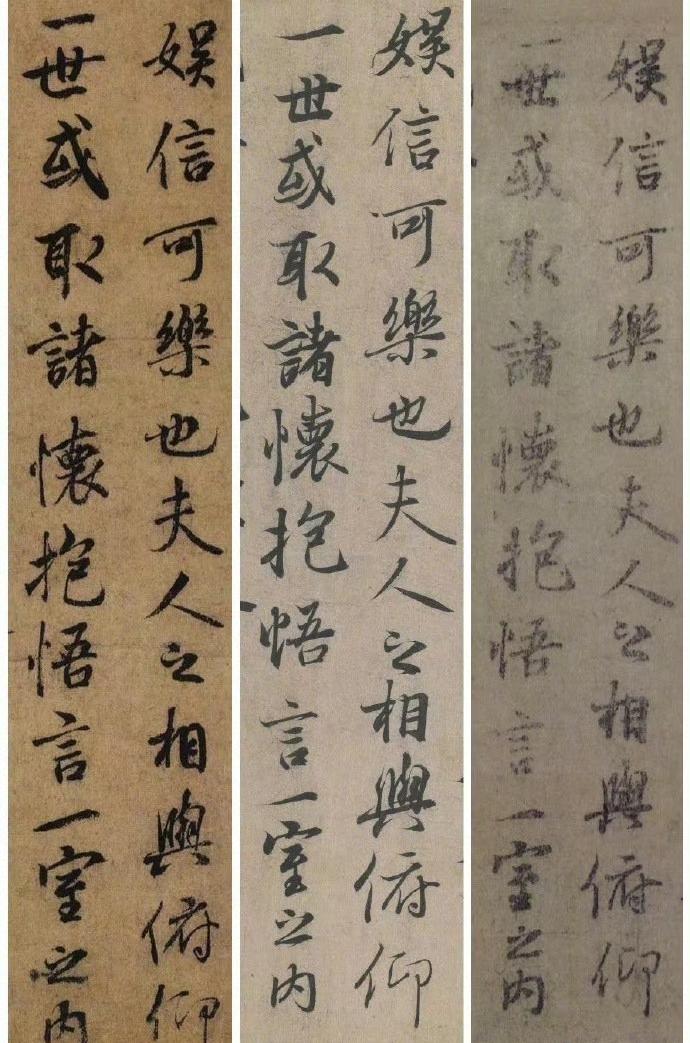 娛信可樂也夫人之相與俯仰
一世或取諸懷抱悟言一室之內
娛信可樂也夫人之相與俯仰
一世或取諸懷抱悟言一室之內
娛信可樂也夫人之相與俯仰
一世或取諸懷抱悟言一室之內